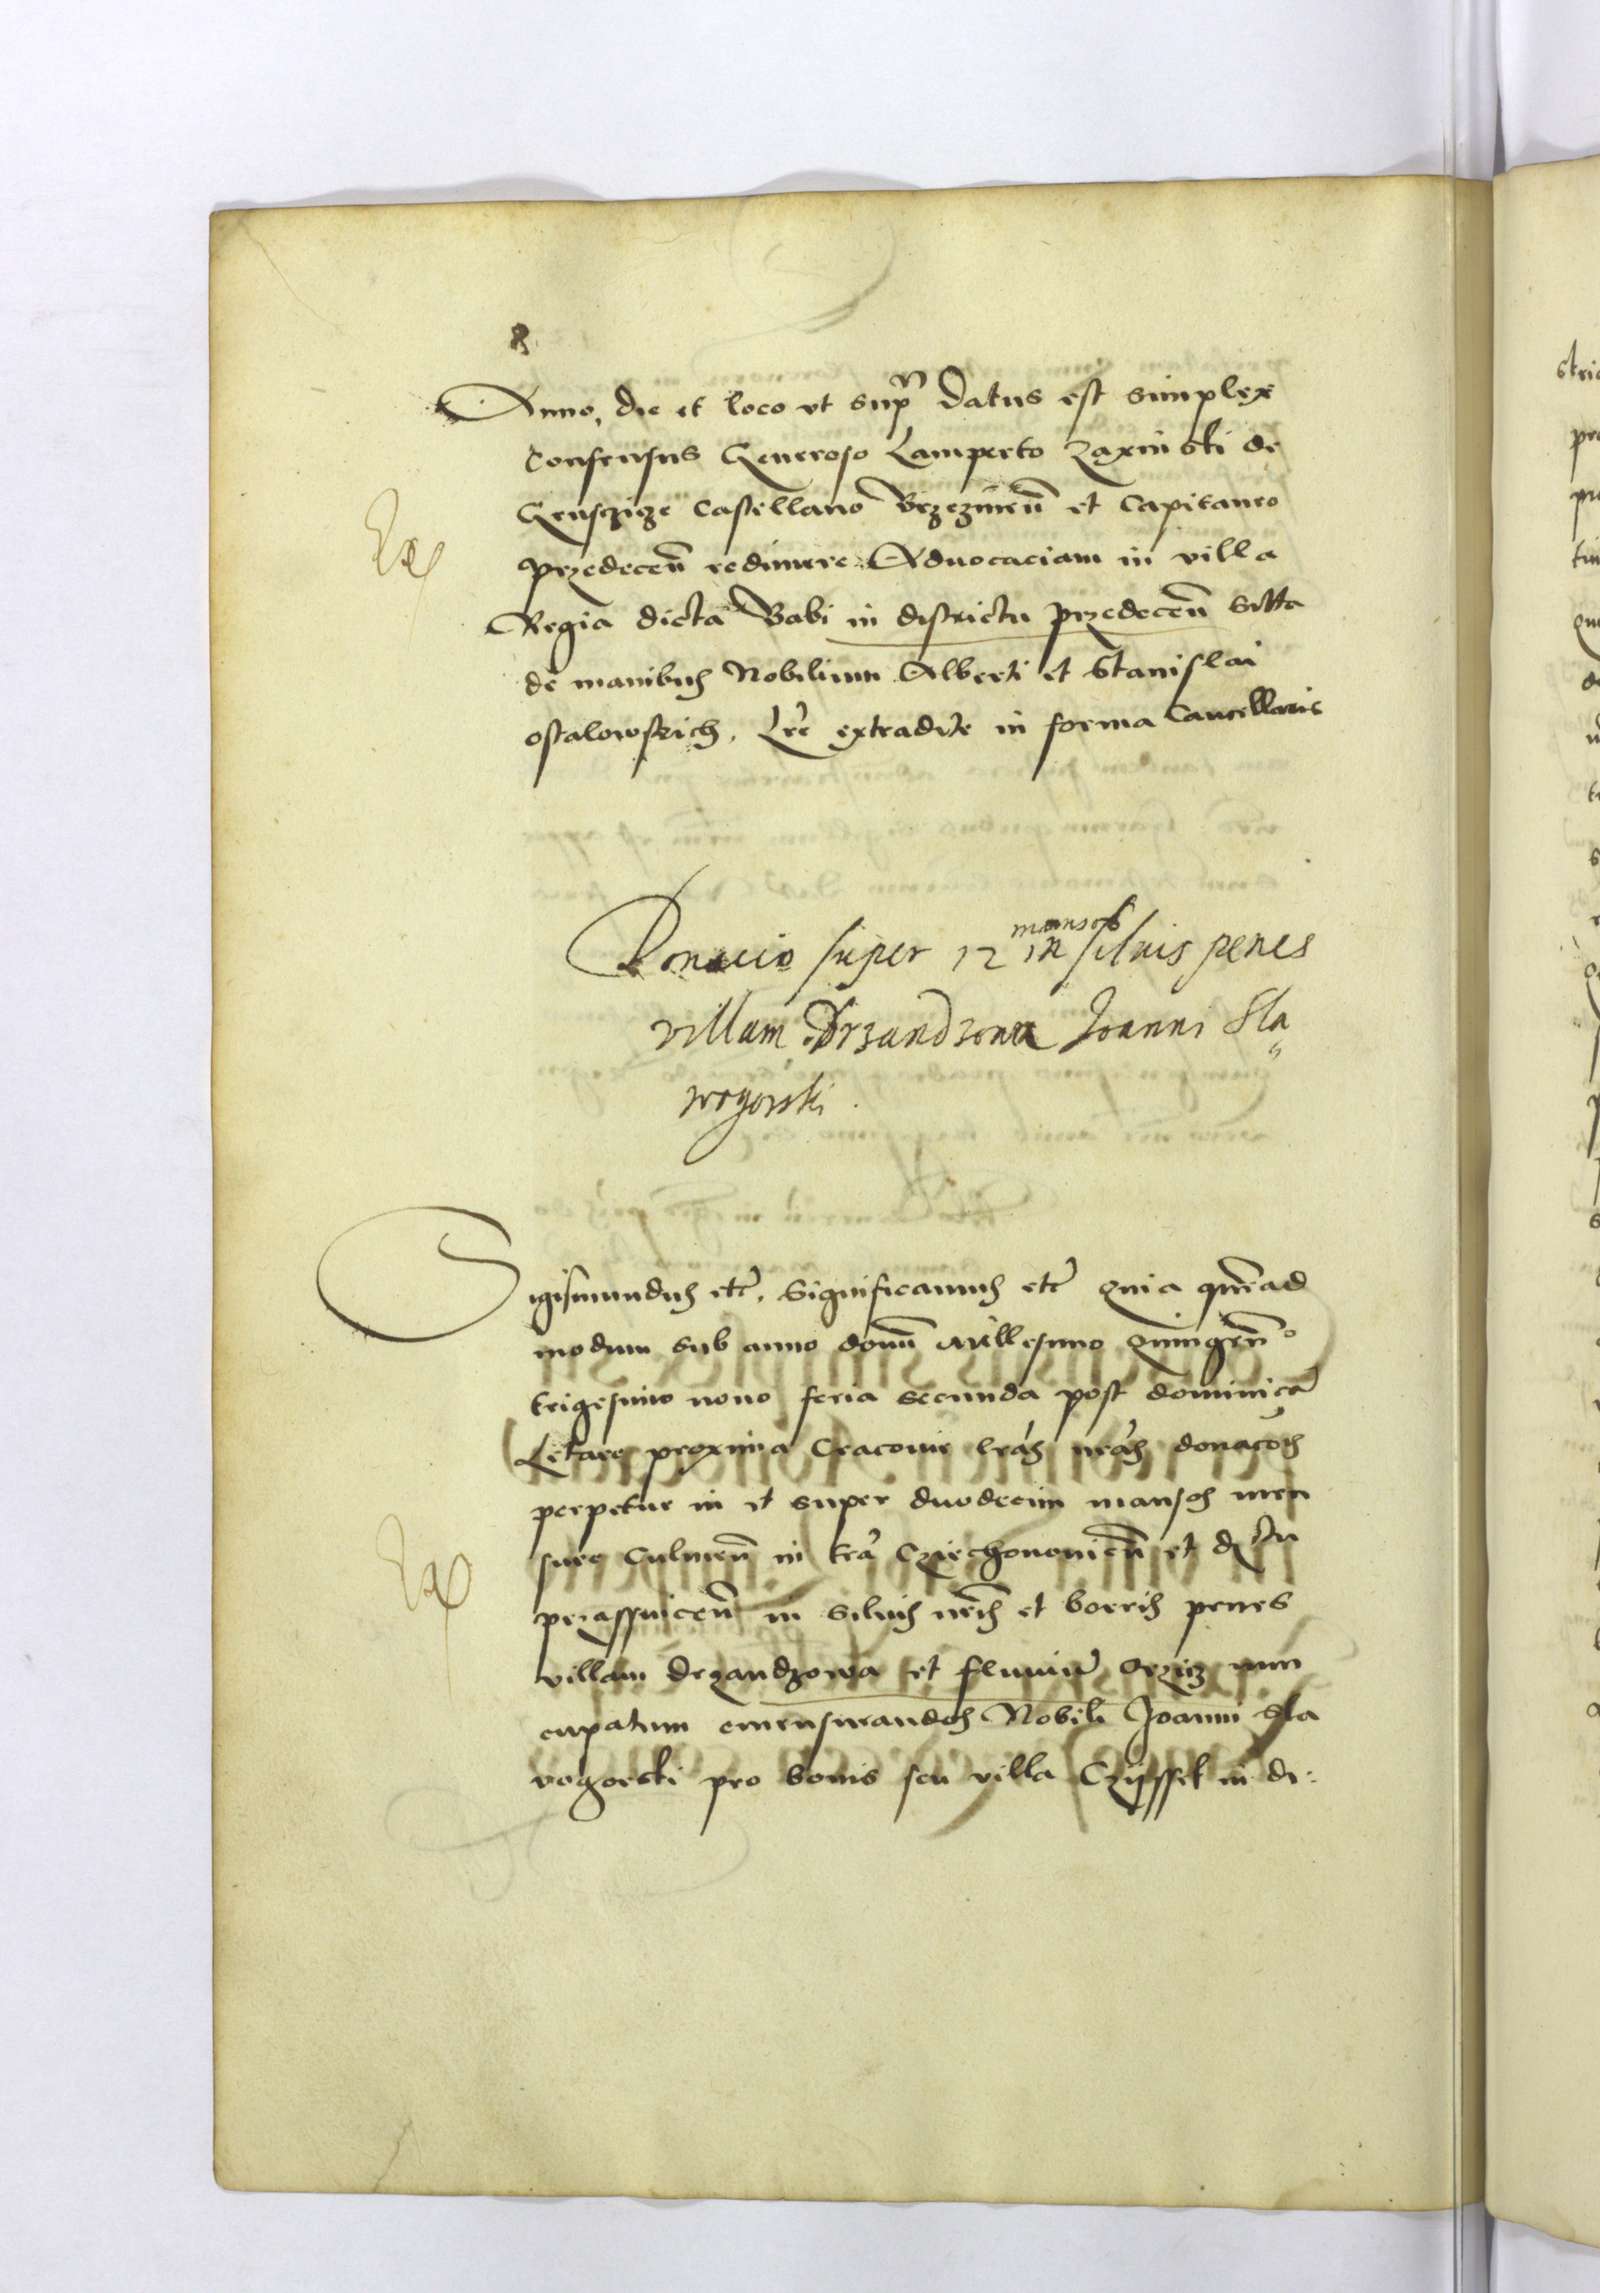 Anno, die et loco vt supr datus est simplex
Consensus Generoso Lamperto Zaxinski de
Castellano Brzezinen et Capitaneo
Przedecen redimere Aduocaciam in villa
Regia dicta Babi in districtu Przedecen sitta
de manibus Nobilium Alberti et Stanislai
ostalowskich. Lre extradite in forma Cancellarie
Donacio super 12 mansos in siluis penes
villam Drzandzowa Joanni Sla
wogorski.
Sigismundus etc. Significamus etc quia quemad
modum sub anno domini Millesimo Quingen°
trigesimo nono feria secunda post dominica
Letare proxima Cracouie lras nras donacois
perpetue in et super duodecim mansos men
sure Culmen in tra Cziechonouien et dictu
przassnicen in siluis nris et borris penes
villam drzandzowa et fluuiu Orzicz nun
cupatum emensurandos Nobili Joanni Sla
vogorski pro bonis seu villa in di: